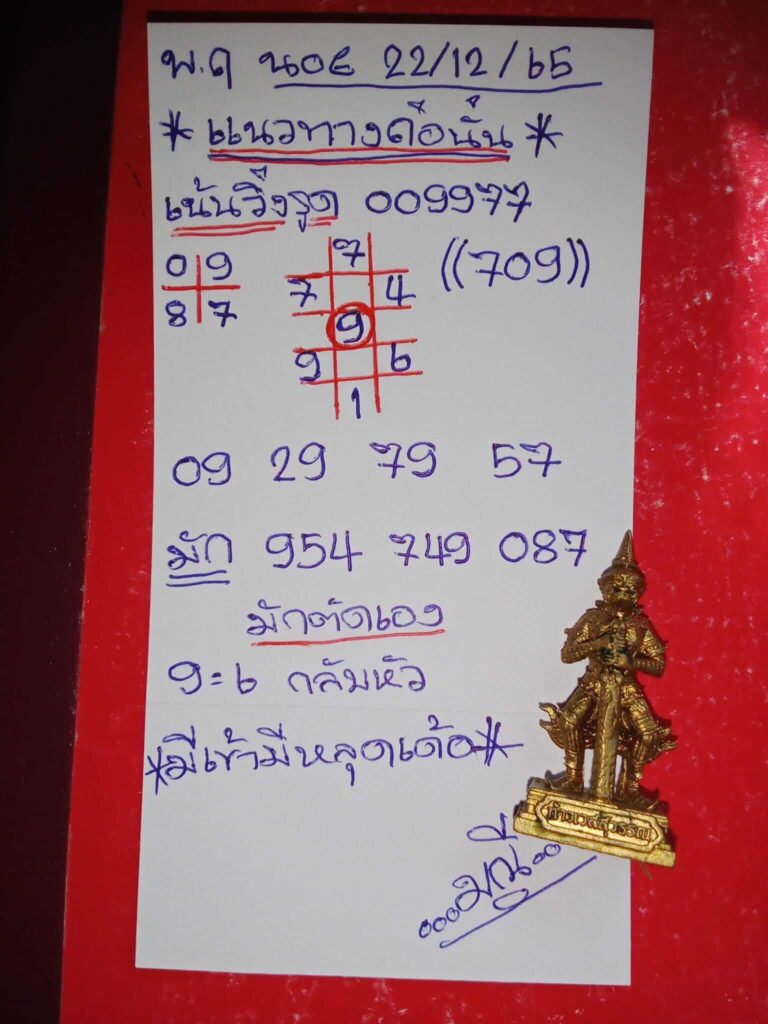 พ.ฤ นอย 22/12/65
*แนวทางคือนั่น*
เน้นวิ่งรูด 009977
0 9
8 7
7
7 4
9
9 6
1
((709))
09 29 79 57
มัก 954 749 087
มักตัดเอง
9=6 กลับหัว
*มีเข้ามีหลุดเด้อ*
...มณี...
ท้าวเวสสุวรรณ